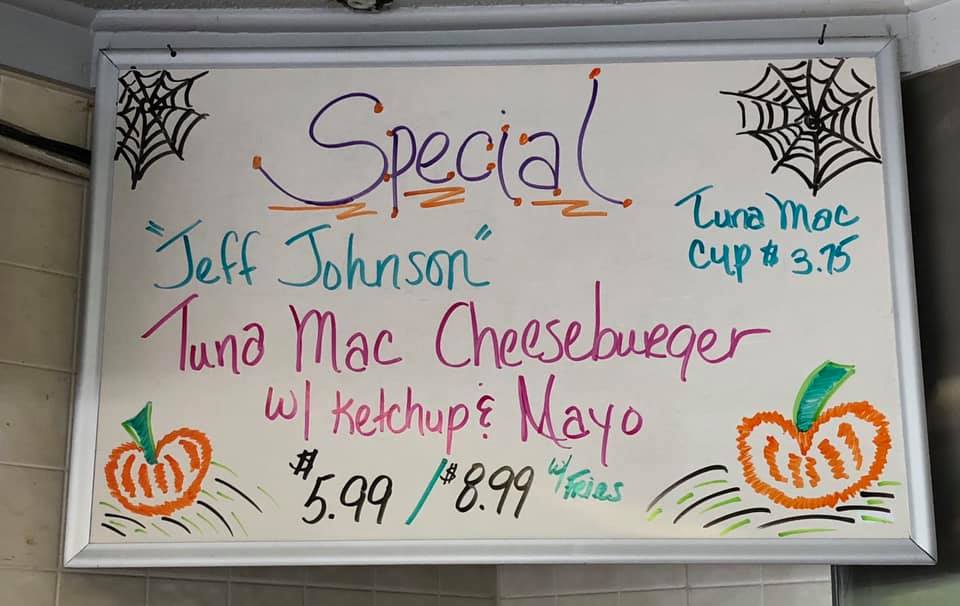 Special
"Jeff Johnson"
Tuna Mac
Cup $3.75
Tuna Mac Cheeseburger
w/ Ketchup & Mayo
$5.99 / $8.99 w/ Fries